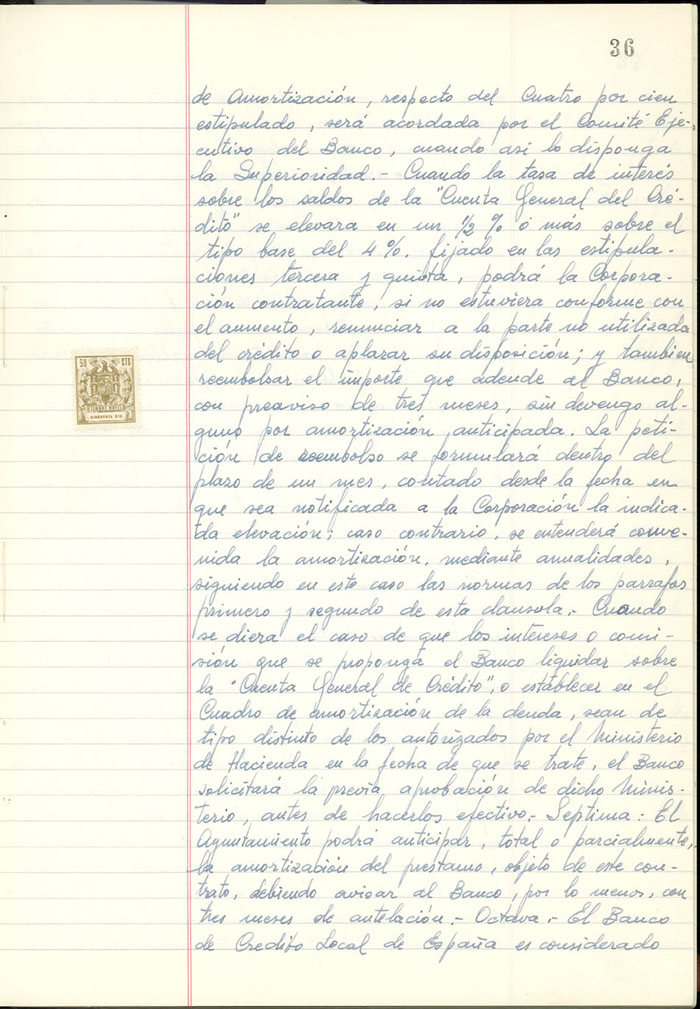 36
de Amortización, respecto del Cuatro por cien
estipulado, será acordada por el Comité Eje-
cutivo del Banco, cuando así lo disponga
la Superioridad.- Cuando la tasa de interés
sobre los saldos de la "Cuenta General del Cré-
dito" se elevara en un ½ % ó más sobre el
tipo base del 4%. fijado en las estipula-
ciones tercera y quinta, podrá la Corpora-
ción contratante, si no estuviera conforme con
el aumento, renunciar a la parte no utilizada
del crédito o aplazar su disposición; y tambien
reembolsar el importe que adeude al Banco,
con preaviso de tres meses, sin devengo al-
guno por amortización anticipada. La peti-
ción de reembolso se formulará dentro del
plazo de un mes, contado desde la fecha en
que sea notificada a la Corporación la indica-
da elevación; caso contrario, se entenderá conve-
nida la amortización, mediante anualidades,
siguiendo en este caso las normas de los parrafos
primero y segundo de esta clausola.- Cuando
se diera el caso de que los intereses o comi-
sión que se proponga el Banco liquidar sobre
la "Cuenta General de Crédito", o establecer en el
Cuadro de amortización de la deuda, sean de
tipo distinto de los autorizados por el Ministerio
de Hacienda en la fecha de que se trate, el Banco
solicitará la previa aprobación de dicho Minis-
terio, antes de hacerlos efectivo.- Septima: El
Ayuntamiento podrá anticipar, total o parcialmente,
la amortización del prestamo, objeto de este con-
trato, debiendo avisar al Banco, por lo menos, con
tres meses de antelación.- Octava.- El Banco
de Credito Local de España es considerado
50 CTS